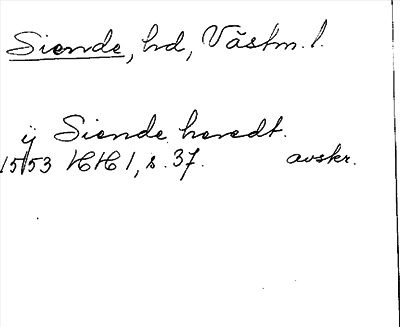 Siende, hd, Västm. l.
ij Siende heredt.
1553 HH 1, s. 37. avskr.